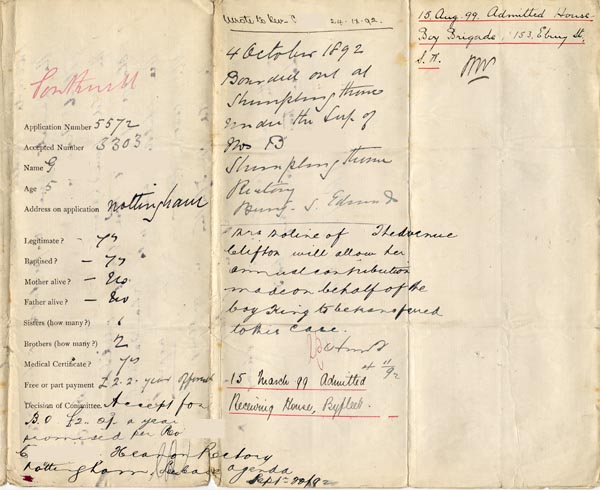 Application Number 5572
Accepted Number 3303
Name G
Age 5
Address on application Nottingham
Legitimate? - Yes
Baptised? - Yes
Mother alive? - No
Father alive? - No
Sisters (how many?)
Brothers (how many?) 2
Medical Certificate? Yes
Free or part payment £2.2. year offered
Decision of Committee. Accept for
B.O. £2. a year
promised per Rev
Heanor Rectory
Nottingham, agenda
Sept 20/92
Wrote to Rev. C 24.10.92.
4 October 1892
Boarded out at
Shimplingthorne
under the Sup of
Mrs B
Shimplingthorne
Rectory
Bury. S. Edmunds
Mrs of The Avenue
Clifton will allow her
annual contribution
made on behalf of the
boy King to be transferred
to this case.
15 March 99 Admitted
Receiving House, Byfleet.
15. Aug. 99. Admitted House-
Boy Brigade, 153, Ebury St.
S.W.